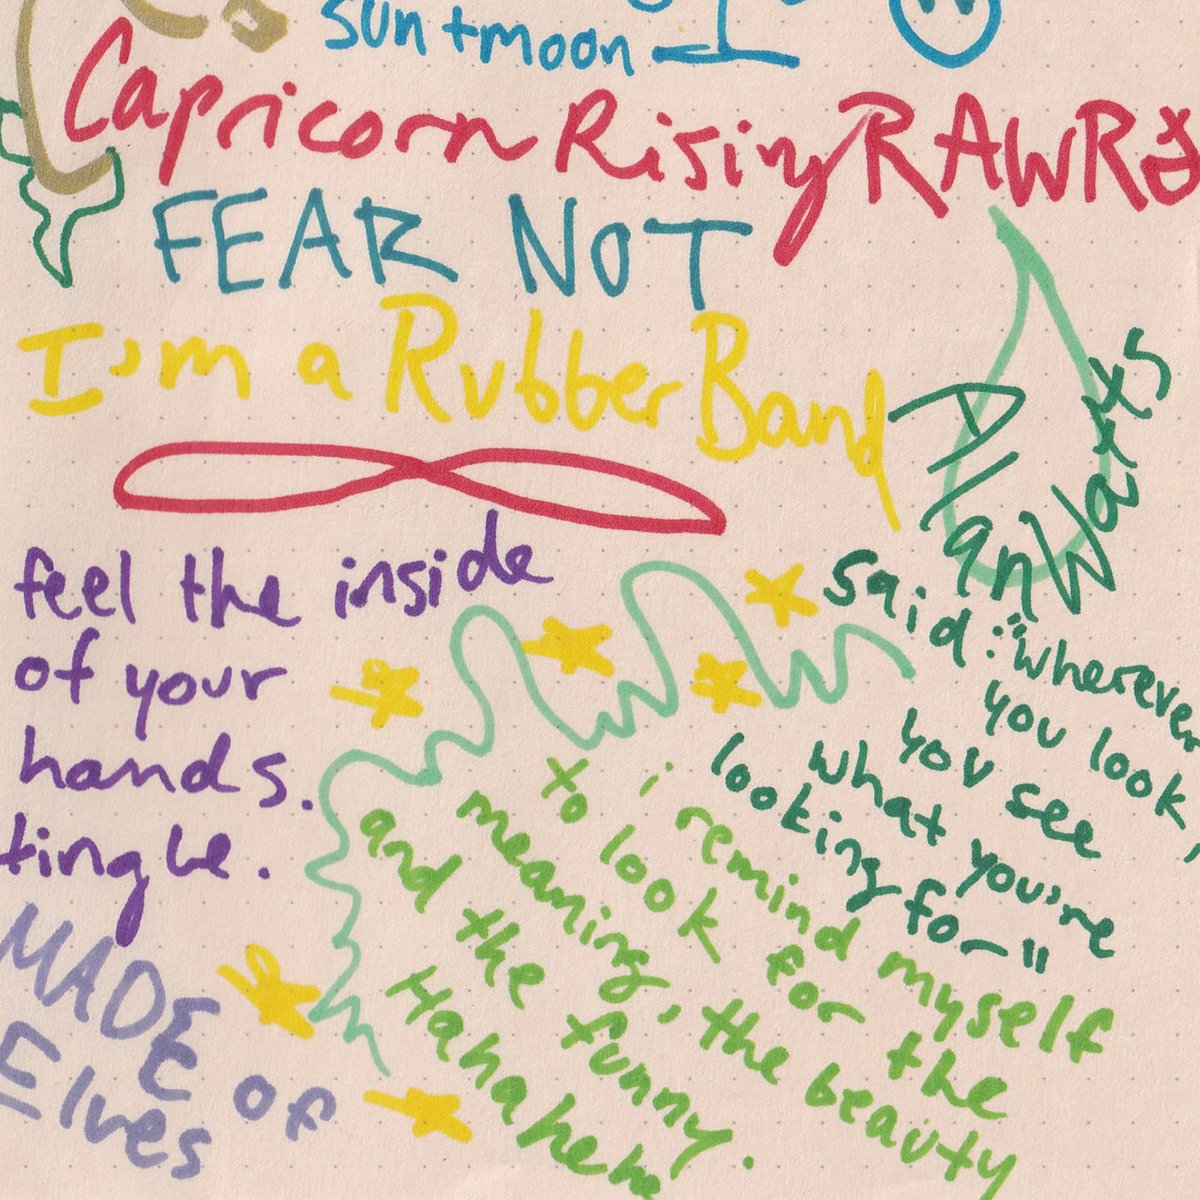 sun + moon
Capricorn Rising RAWR
FEAR NOT
I'm a Rubber Band
Alan Watts
said: "wherever
you look,
you see
what you're
looking for"
feel the inside
of your
hands.
tingle.
i remind myself
to look for the
meaning, the beauty
and the funny.
Hahahehe
MADE of
Elves